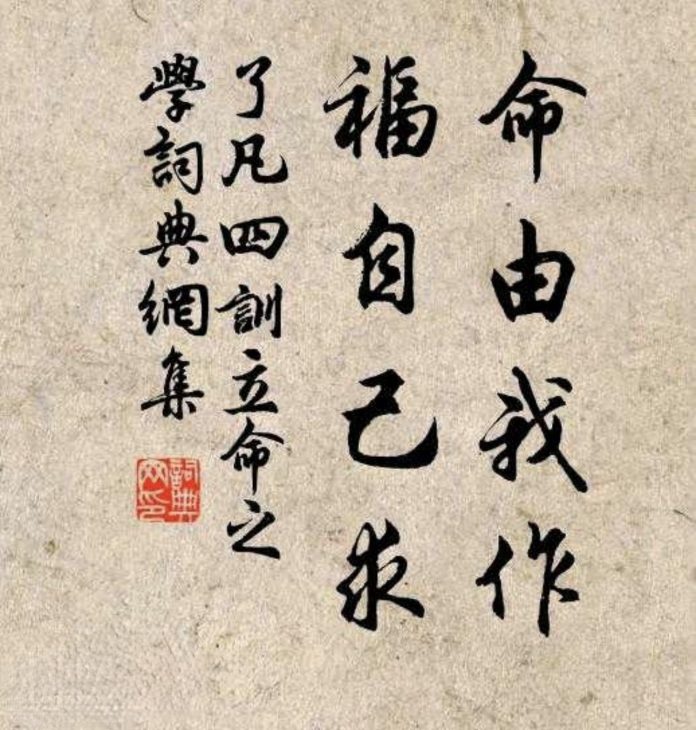 命由我作
福自己求
了凡四訓立命之
學詞典網集
詞典
网印